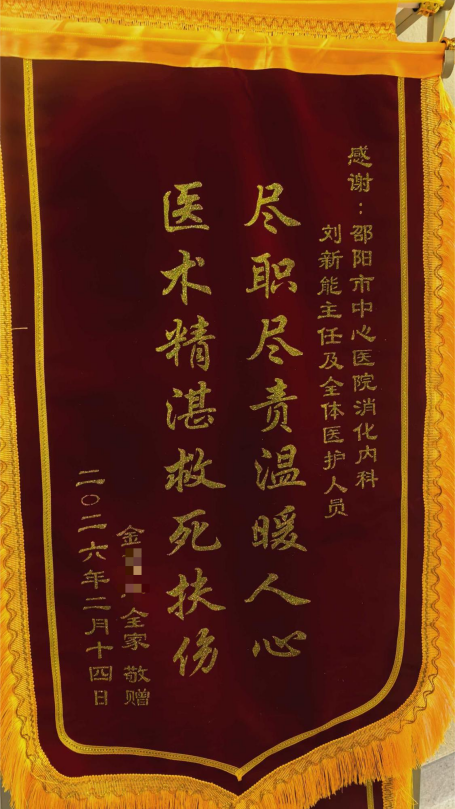 感谢：邵阳市中心医院消化内科
刘新能主任及全体医护人员
尽职尽责温暖人心
医术精湛救死扶伤
金 全家 敬赠
二〇二六年二月十四日